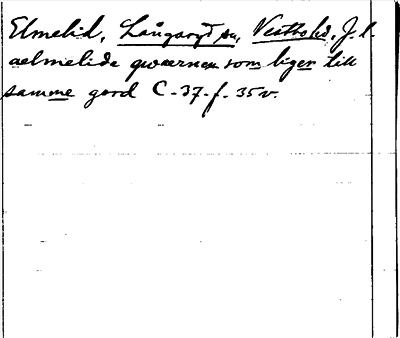 Elmelid, Långaryd sn, Västbo hd, J. l.
aelmelide qwaernen som liger till
samme gord C-37-f. 35v.